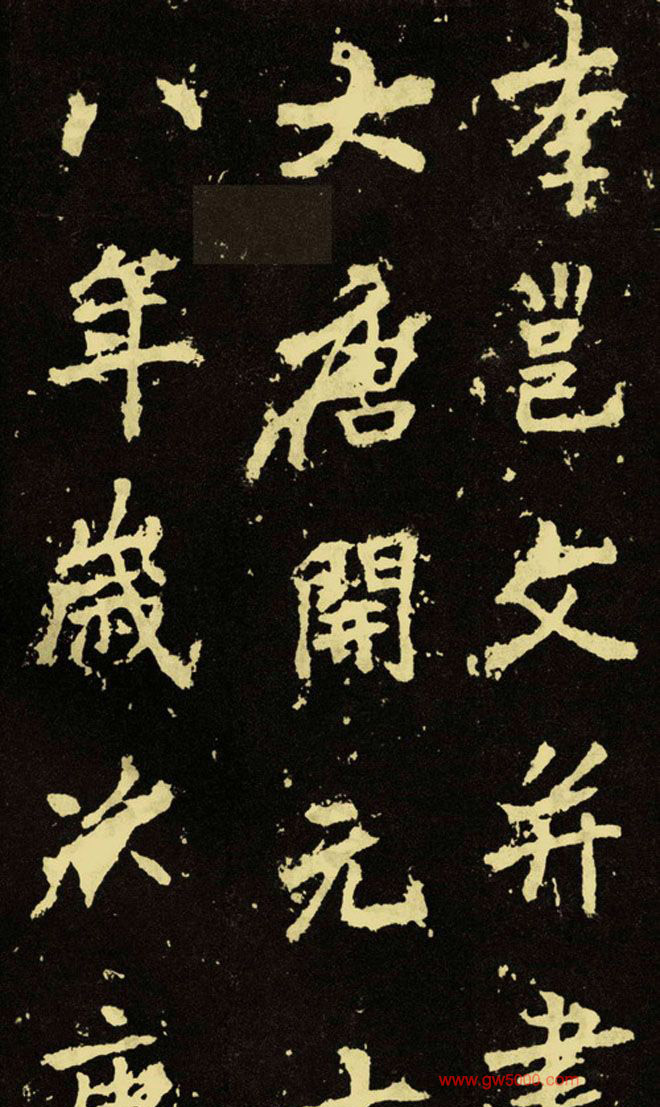 李邕文并書
大唐開元十
八年歲次庚
www.gw5000.com